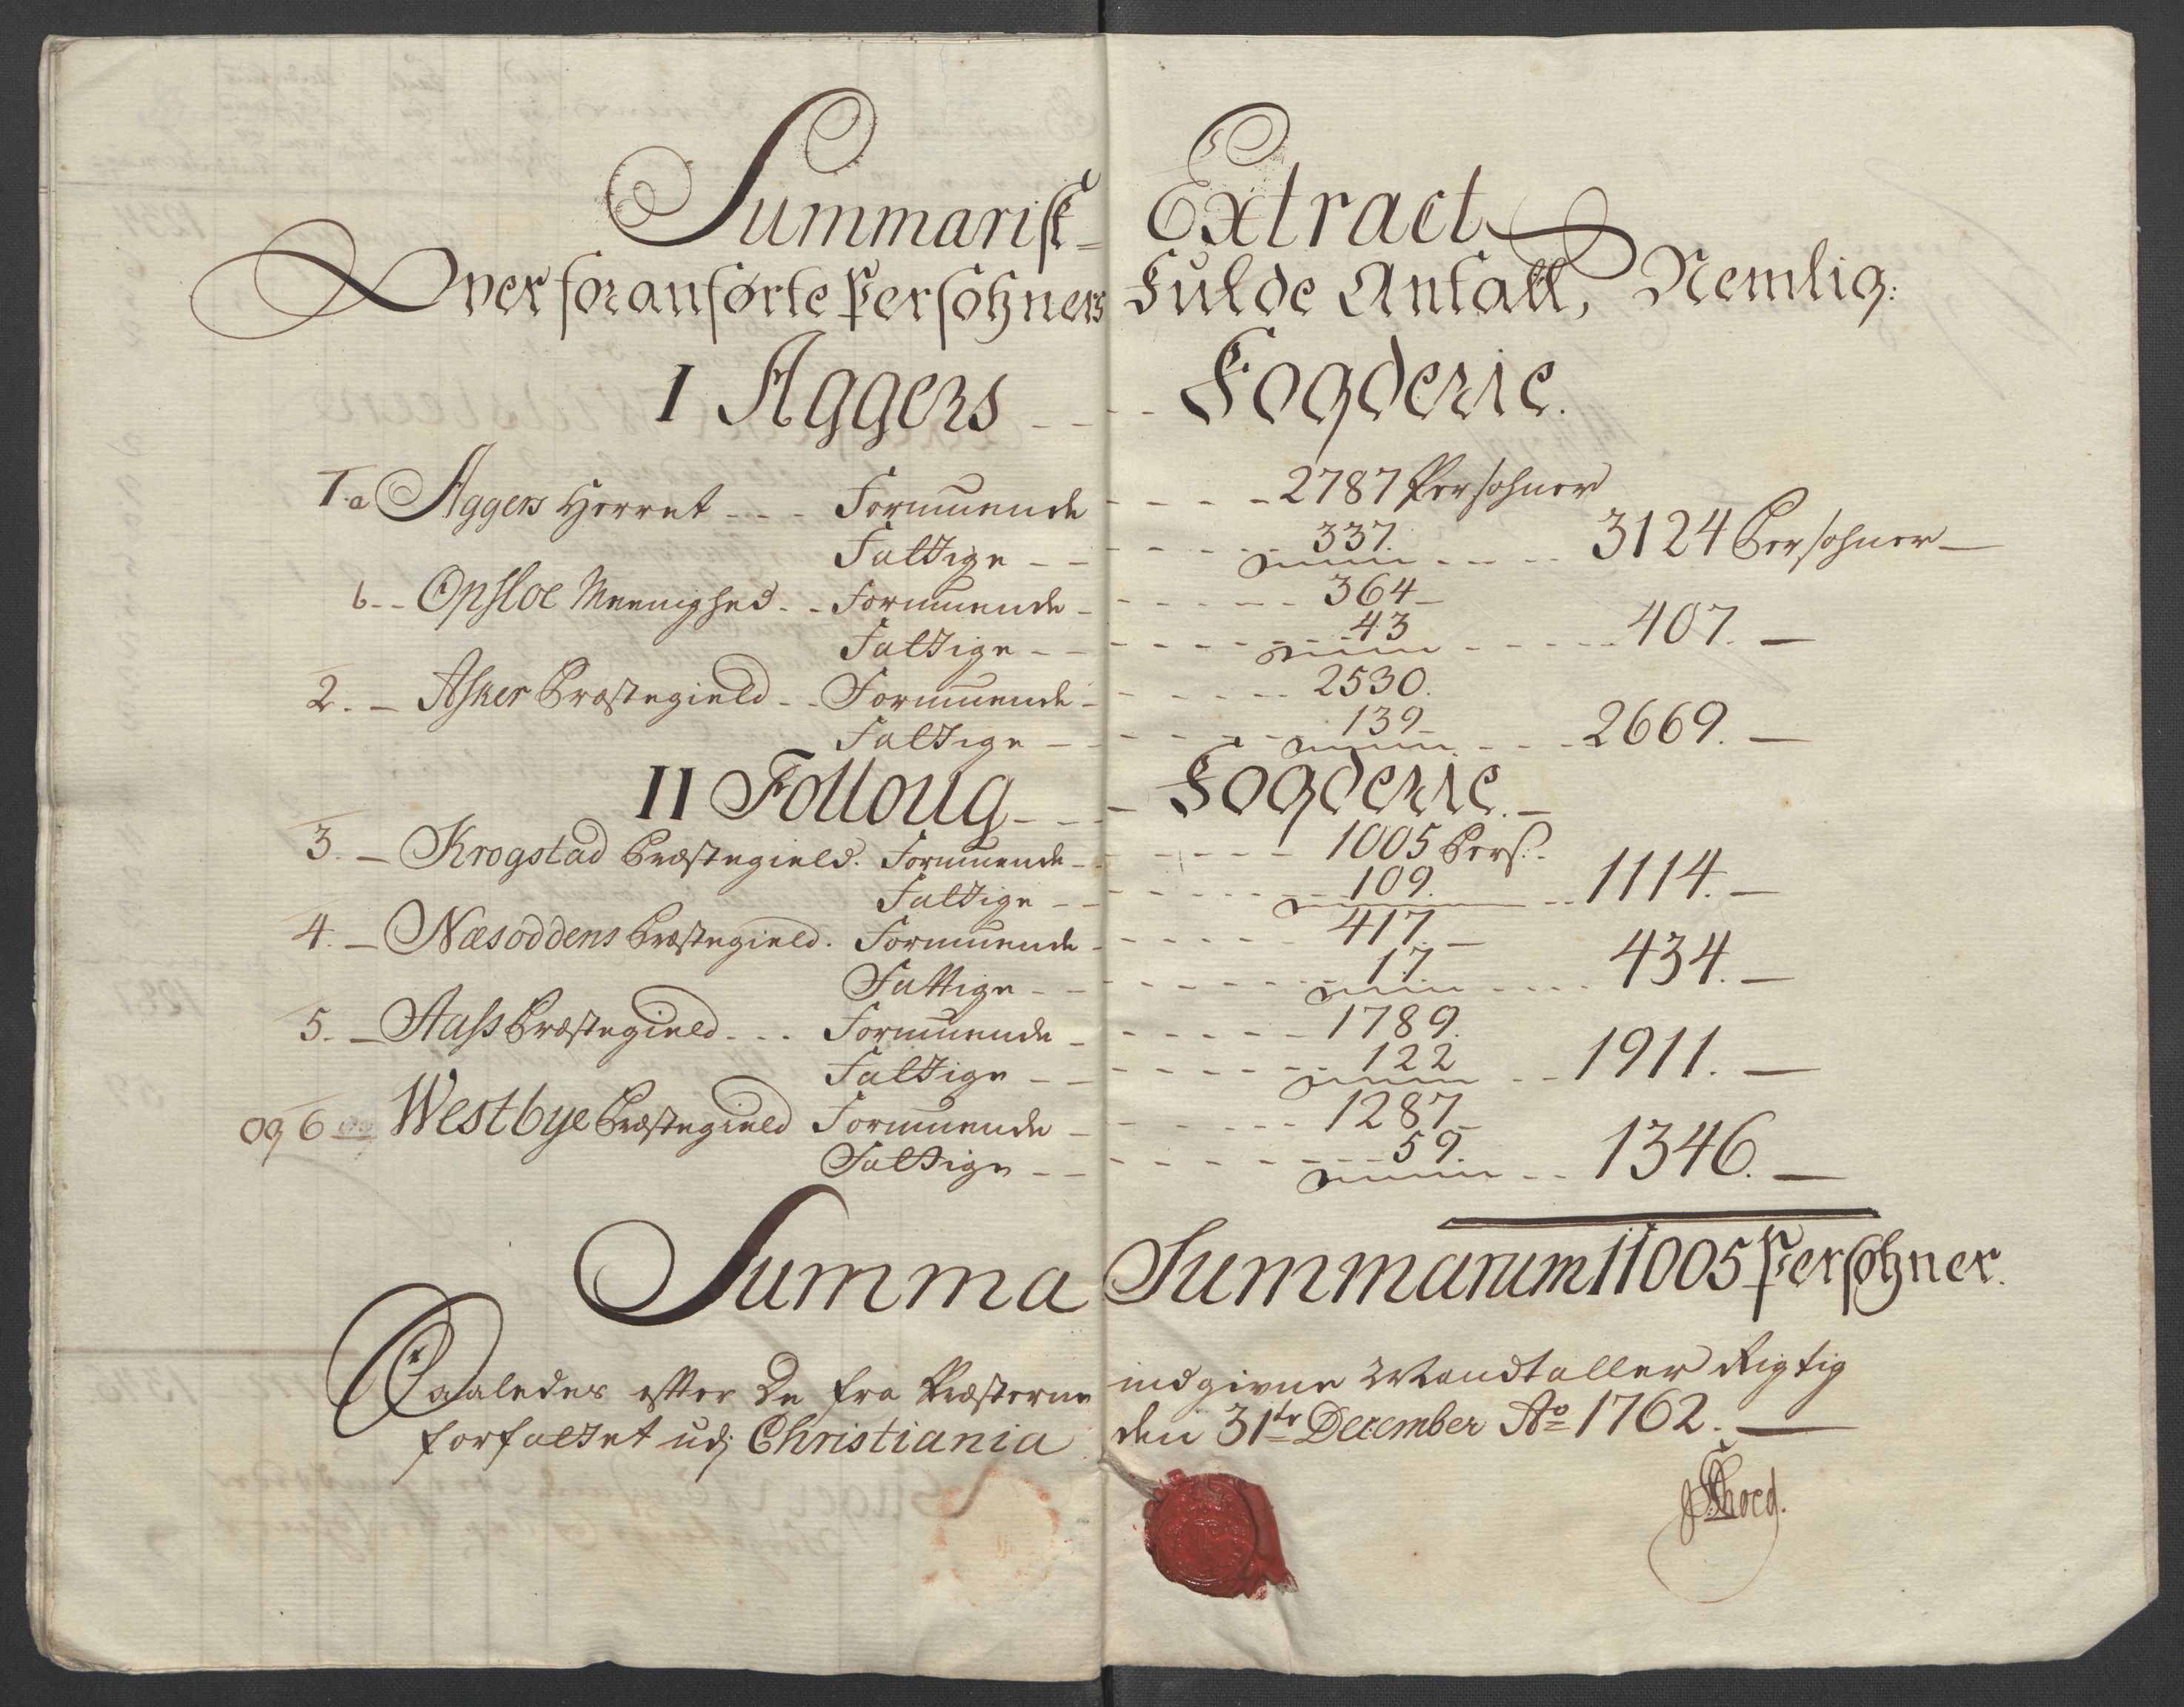 Summarisk= Extract
Over foranførte Persohners Fulde Antall, Nemlig:
I Aggers - - - Fogderie.
1.a Aggers Herret - - - Formuende - - - - 2787 Persohner
Fattige - - - - - - 337. - - - - 3124 Persohner
b - - Opsloe Meenighed - - Formuende - - - - - - 364
Fattige - - - - - - 43 - - - - - 407.
2. - Asker Præstegield - - Formuende - - - - - 2530.
Fattige - - - - - - 139 - - - - 2669.
II Folloug - - - Fogderie.
3. - Krogstad Præstegield. Formuende - - - - - 1005 Pers:
Fattige - - - - - - 109. - - 1114.
4. - Næsoddens Præstegield. Formuende - - - - - 417.
Fattige - - - - - - 17. - - - - 434.
5. - Aass Præstegield - - - Formuende - - - - - 1789.
Fattige - - - - - - 122 - - 1911.
og 6 Westbye Præstegield Formuende - - - - - 1287
Fattige - - - - - - 59. - - 1346.
Summa Summarum 11005 Persohner.
Saaledes efter De fra Præsterne indgivne Mandtaller Rigtig
forfattet udj Christiania den 31te December Ao 1762.